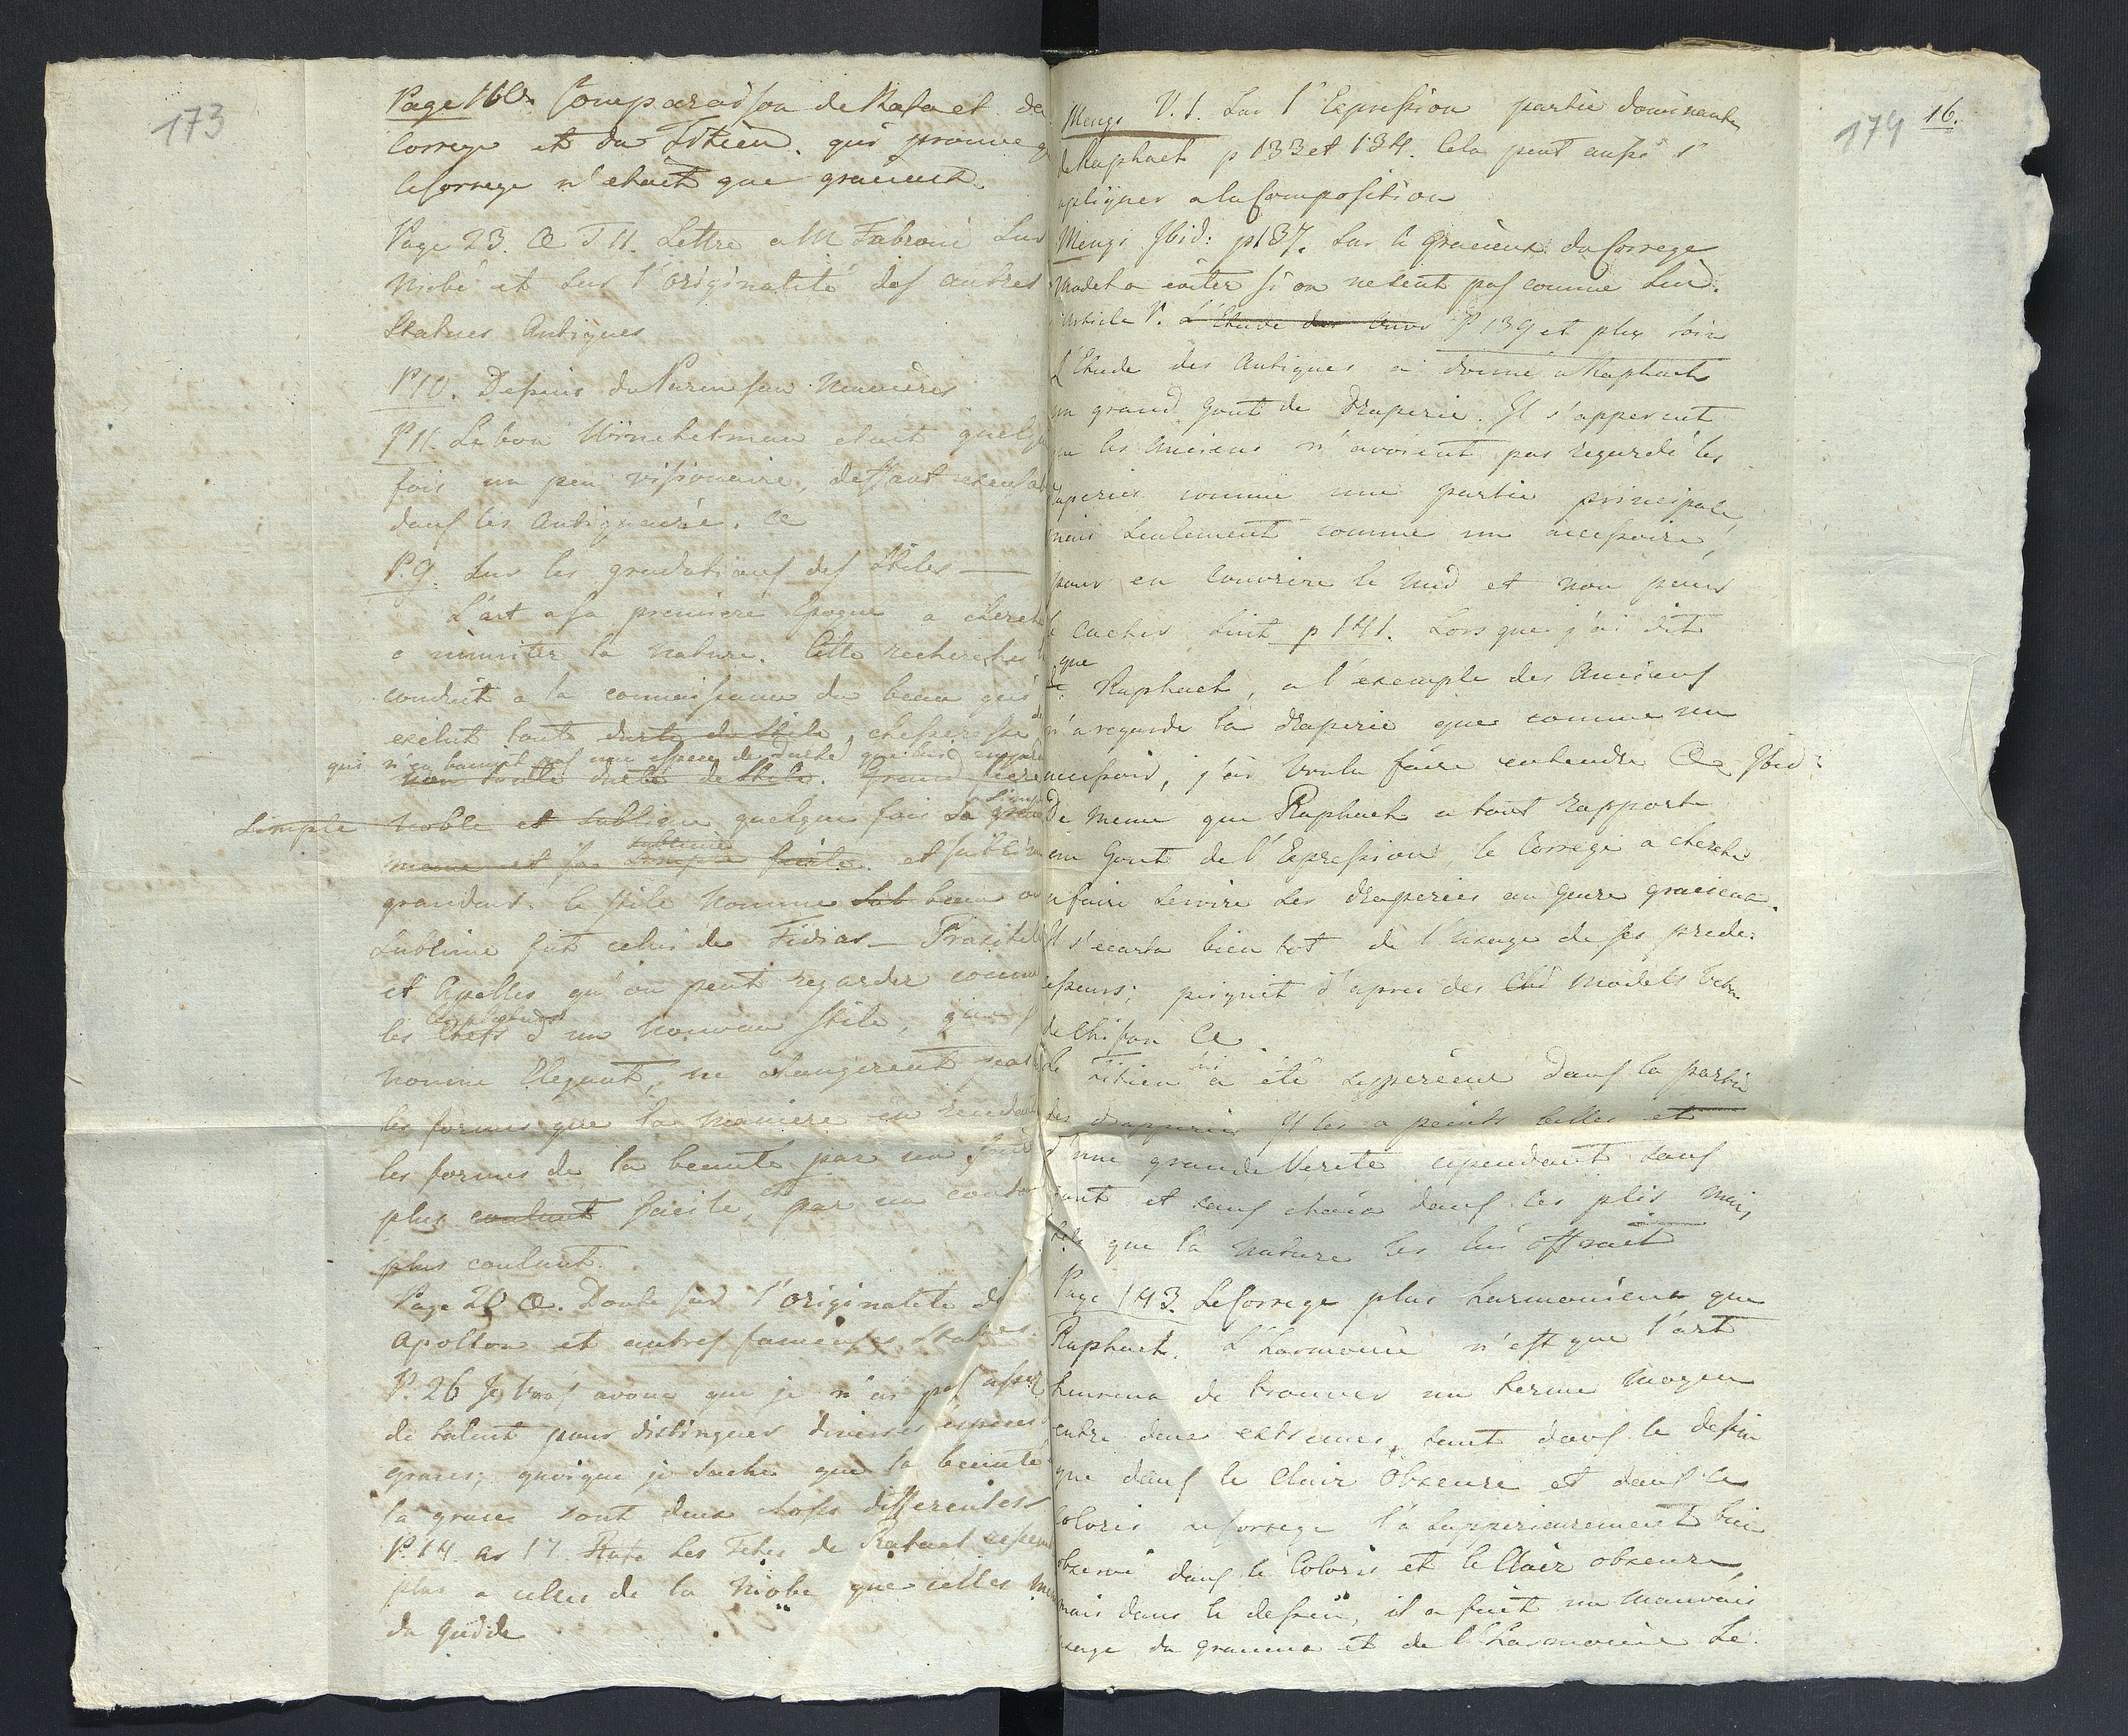 173
Page 160. Comparaison de Rafaet de
Correge et du Titien. qui prouve q
le Correge n'etoit que gracieux.
Page 23. & T II. Lettre a M Fabroni Sur
Niobé et sur l'originalité des autres
Statues Antiques
P 10. Dessins du Parmesan Manierés
P 11. Le bon Winchelman etoit quelque
fois un peu visionaire, deffaut
dans les Antiquaire. &
P. 9. Sur les gradations des Stiles —
L'art a sa premiere Epoque a cherch
a immiter la nature. Cette recherche l
conduit a la connoissance du beau qui
exclut toute dureté du Stile,
qui n'en bannit pas une espece de dureté que
non toutte dureté de Stile. Grand
Simple noble et sublime quelque fois la
meme et sublime et sublime
grandeur. le stile nomme Sub beau ou
Sublime fut celui de Fidias — Praxitele
et Apelles qu'on peut regarder comme
les Chefs d'un nouveau stile, que
nomme Elegant, ne changerent pas
les formes que la maniere en rendant
les formes de la beauté par un
plus coulant facile, et par un contour
plus coulant.
Page 20 &. Doute sur l'originalite de
Apollon et autres fameuses Statues.
P. 26 Je vous avoue que je n'ai pas assez
de talent pour distinguer diverses especes
graces; quoique je sache que la beauté
la grace sont deux choses differentes
P. 14 ar 17 Rafa Les Tetes de Rafael
plus a celles de la Niobe que celles mem
du Guide
174 16.
Mengs V. 1. Sur l'Expression partie dominante
de Raphael p 133 et 134. Cela peut aussi s'
apliquer a la Composition
Mengs Ibid: p 137. Sur le Gracieux du Correge
Model a eviter si on ne sent pas comme Lui.
Article V. L'Etude des P 139 et plus loin
L'Etude des Antiques a donné a Raphael
un grand Gout de Draperie. Il s'apperceut
que les Anciens n'avoient pas regardé les
draperies comme une partie principale,
mais seulement comme un accessoire,
pour en couvrire le nud et non pour
le cacher suit p 141. Lorsque j'ai dit
que
Raphael, a l'exemple des Anciens
n'a regardé la draperie que comme un
accessoir, j'ai voulu faire entendre & Ibid:
De meme que Raphael a tout rapporté
au Gout de l'Expression, le Correge a cherché
a faire servire les draperies au genre gracieux.
Il s'ecarta bien tot de l'usage de ses prede-
cesseurs; peignit d'apres des Chi models
de Chifon &.
Le Titien a été supperieur dans la partie
des drapperies Il les a peints belles et
d'une grande Verité cependant sans
gout et sans choix dans les plis mais
tels que la nature les lui offrait
Page 143. Le Correge plus harmonieux que
Raphael. L'harmonie n'est que l'art
heureux de trouver un terme moyen
entre deux extremes, tant dans le dessin
que dans le Clair Obscure et dans le
Coloris le Correge l'a supperieurement bien
observé dans le Coloris et le Clair obscure,
mais dans le dessin, il a fait un mauvais
usage du gracieux et de l'harmonie Le